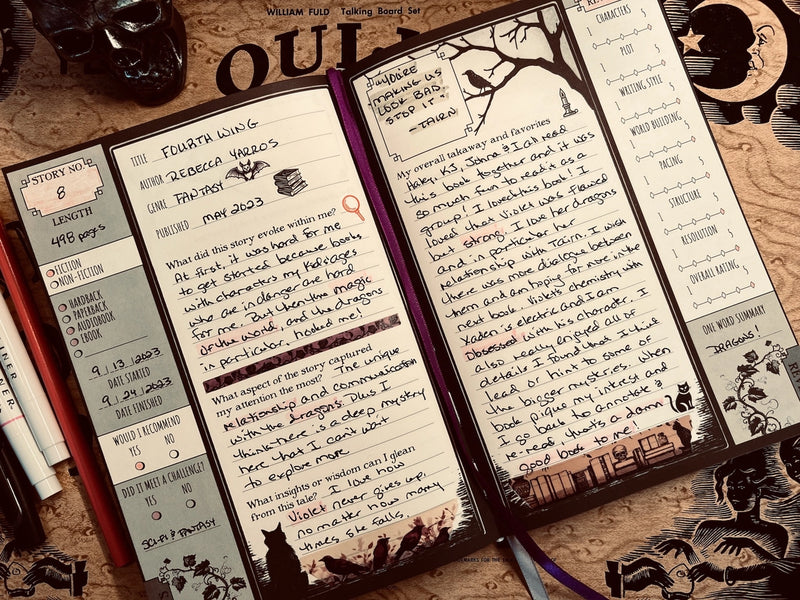 WILLIAM FULD Talking Board Set
OUIJ
STORY NO.
8
LENGTH
498 pages
FICTION
NON-FICTION
HARDBACK
PAPERBACK
AUDIOBOOK
EBOOK
9/13/2023
DATE STARTED
9/24/2023
DATE FINISHED
WOULD I RECOMMEND
YES NO
DID IT MEET A CHALLENGE?
YES NO
SCI-FI & FANTASY
TITLE FOURTH WING
AUTHOR REBECCA YARROS
GENRE FANTASY
PUBLISHED MAY 2023
What did this story evoke within me?
At first, it was hard for me
to get started because books
with characters my kids ages
who are in danger are hard
for me. But then the magic
of the world, and the dragons
in particular, hooked me!
What aspect of the story captured
my attention the most? The unique
relationship and communication
with the dragons. Plus I
think there is a deep mystery
here that I can't wait
to explore more
What insights or wisdom can I glean
from this tale? I love how
Violet never gives up,
no matter how many
times she falls.
YOU'RE
MAKING US
LOOK BAD.
STOP IT.
-TAIRN
My overall takaway and favorites
Haley, KJ, Johna & I all read
this book together and it was
so much fun to read it as a
group! I loved this book! I
loved that Violet was flawed
but strong. I love her dragons
and in particular her
relationship with Tairn. I wish
there was more dialogue between
them and am hoping for more in the
next book. Violet's chemistry with
Xaden is electric and I am
Obsessed with his character. I
also really enjoyed all of
details I found that I think
lead or hint to some of
the bigger mysteries. When
a book pique my interest and
I go back to annotate &
re-read, that's a damn
good book to me!
CHARACTERS
1 5
PLOT
1 5
WRITING STYLE
1 5
WORLD BUILDING
1 5
PACING
1 5
STRUCTURE
1 5
RESOLUTION
1 5
OVERALL RATING
1 5
ONE WORD SUMMARY
DRAGONS!